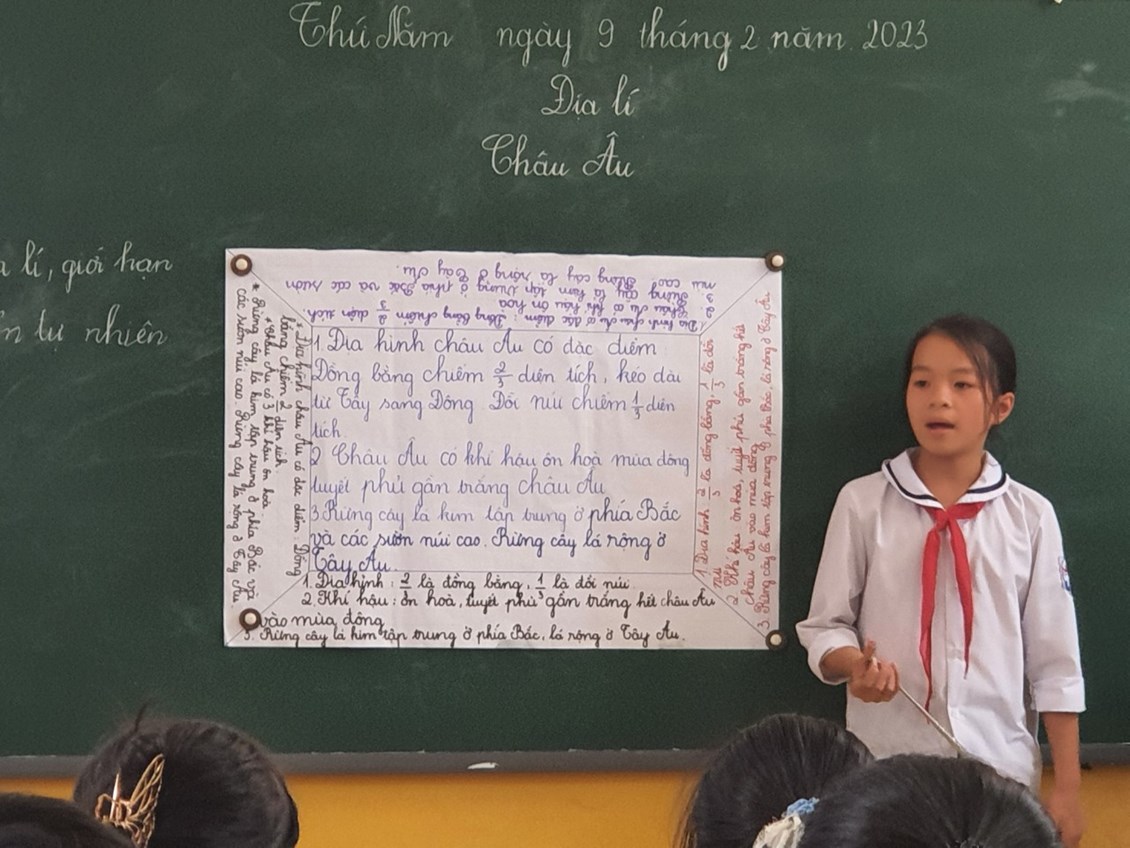 Thứ Năm ngày 9 tháng 2 năm 2023
Địa lí
Châu Âu
lí, giới hạn
tự nhiên
Rừng cây lá rộng ở Tây Âu.
núi cao.
3. Rừng cây lá kim tập trung ở phía Bắc và các sườn
2. Châu Âu có khí hậu ôn hoà
1. Địa hình châu Âu có đặc điểm: Đồng bằng chiếm 2/3 diện tích.
* Địa hình châu Âu có đặc điểm: Đồng
bằng chiếm 2/3 diện tích.
* Châu Âu có khí hậu ôn hoà.
* Rừng cây lá kim tập trung ở phía Bắc và
các sườn núi cao. Rừng cây lá rộng ở Tây Âu.
1. Địa hình châu Âu có đặc điểm
Đồng bằng chiếm 2/3 diện tích, kéo dài
từ Tây sang Đông Đồi núi chiếm 1/3 diện
tích
2 Châu Âu có khí hậu ôn hoà mùa đông
tuyết phủ gần trắng châu Âu
3. Rừng cây lá kim tập trung ở phía Bắc
và các sườn núi cao. Rừng cây lá rộng ở
Tây Âu.
1. Địa hình 2/3 là đồng bằng, 1/3 là đồi
núi
2 Khí hậu ôn hoà, tuyết phủ gần trắng hết
châu Âu vào mùa đông
3 Rừng cây lá kim tập trung ở phía Bắc, lá rộng ở Tây Âu
1. Địa hình: 2/3 là đồng bằng, 1/3 là đồi núi
2. Khí hậu: ôn hoà, tuyết phủ gần trắng hết châu Âu
vào mùa đông
3. Rừng cây lá kim tập trung ở phía Bắc, lá rộng ở Tây Âu.